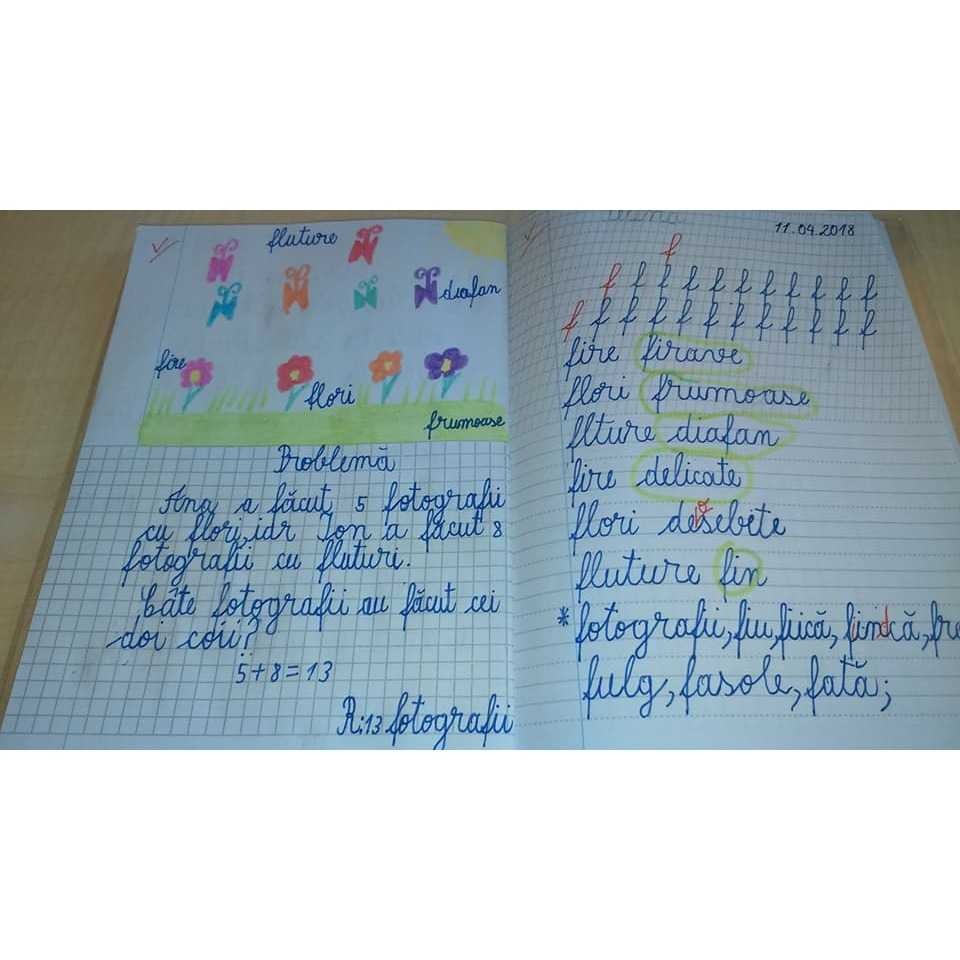 fluture
diafan
fire
flori
frumoase
Problemă
Ana a făcut 5 fotografii
cu flori, iar Ion a făcut 8
fotografii cu fluturi.
Câte fotografii au făcut cei
doi coii?
5+8=13
R:13 fotografii
11.04.2018
f
f f f f f f f f f f f
f f f f f f f f f f f f
fire firave
flori frumoase
flture diafan
fire delicate
flori desebite
fluture fin
* fotografii, fiu, fiică, findcă, fre
fulg, fasole, fată;